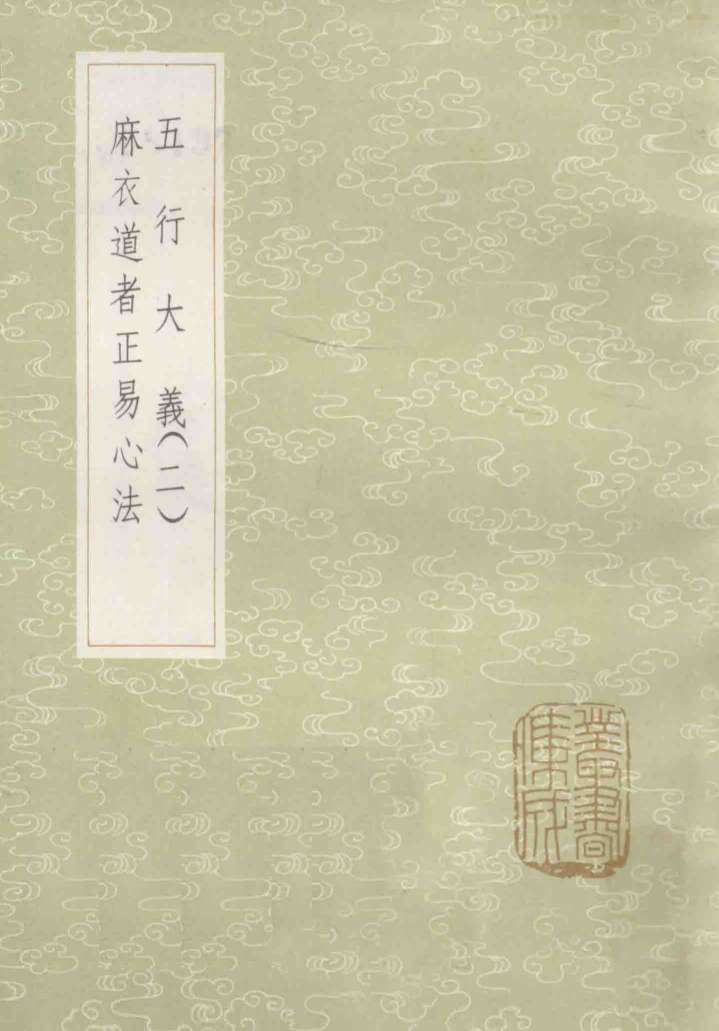 五行大義(二)
麻衣道者正易心法
叢書
集成